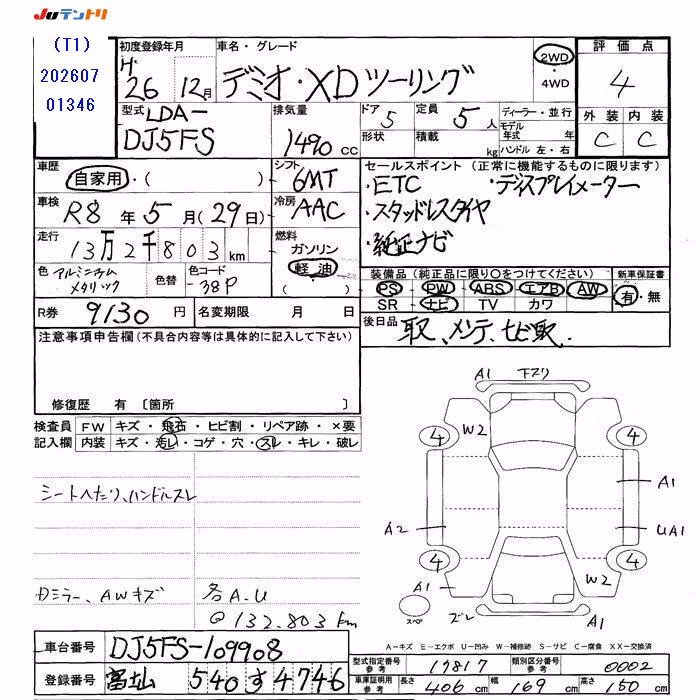 JUテントリ
(T1)
202607
01346
初度登録年月
H
26 12月
車名・グレード
デミオ・XDツーリング
2WD
・
4WD
評価点
4
外装 内装
C C
型式 LDA-
DJ5FS
排気量
1490 cc
ドア 5
形状
定員 5 人
積載 kg
ディーラー・並行
モデル年式 年
ハンドル 左・右
車歴
自家用・( )
シフト
6MT
車検
R8 年 5 月 (29日)
冷房
AAC
走行
13万2千803 km
燃料
ガソリン
軽油
( )
色 アルミニウムメタリック
色替
色コード
38P
セールスポイント (正常に機能するものに限ります)
・ETC ・ディスプレイメーター
・スタッドレスタイヤ
・純正ナビ
装備品 (純正品に限り○をつけてください)
PS・PW・ABS・エアB・AW
SR・ナビ・TV カワ
新車保証書
有・無
R券 9130 円
名変期限 月 日
後日品 取、メンテ、ナビ取.
注意事項申告欄 (不具合内容等は具体的に記入して下さい)
修復歴 有 〔箇所 〕
検査員記入欄
FW キズ・飛石・ヒビ割・リペア跡・×要
内装 キズ・汚レ・コゲ・穴・スレ・キレ・破レ
シートへたり、ハンドルスレ
カミラー、AWキズ 各A.U
@132.803km
A1 下スリ
4 W2 4
A1
A2 UA1
4 4
W2
A1
スペア
ズレ A1
A-キズ E-エクボ U-凹み W-補修跡 S-サビ C-腐食 XX-交換済
車台番号 DJ5FS-109908
登録番号 富山 540 す 4746
型式指定番号 参考 17817
類別区分番号 参考 0002
車庫証明用 参考 長さ 406 cm 幅 169 cm 高さ 150 cm